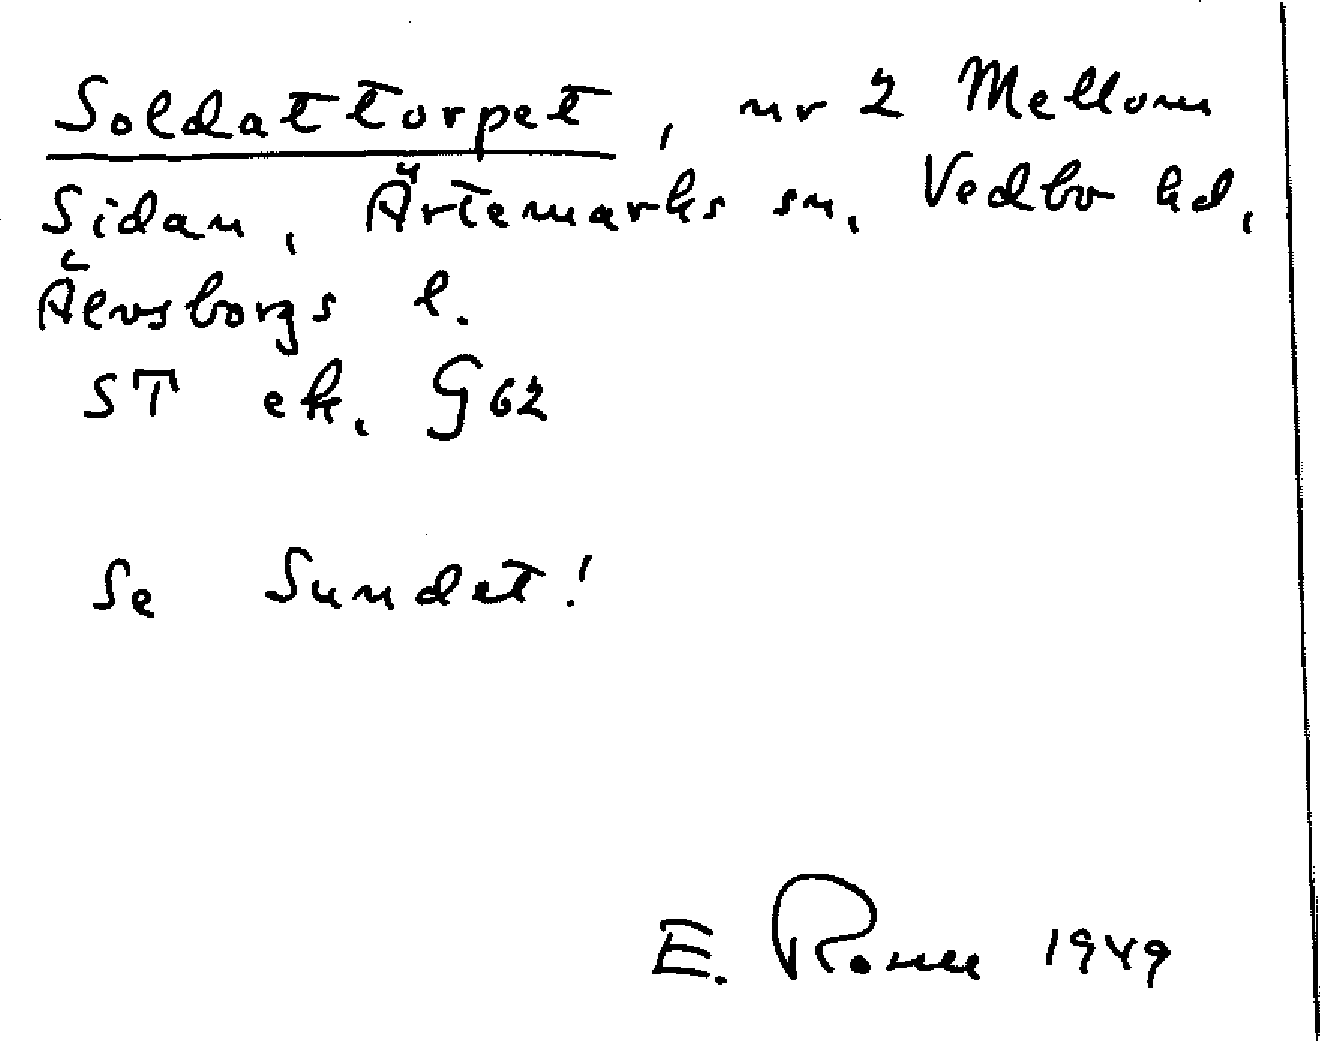 Soldattorpet, nr 2 Mellom
Sidan, Ärtemarks sn. Vedbo hd,
Älvsborgs l.
ST ek. G62
Se Sundet!
E. 1949